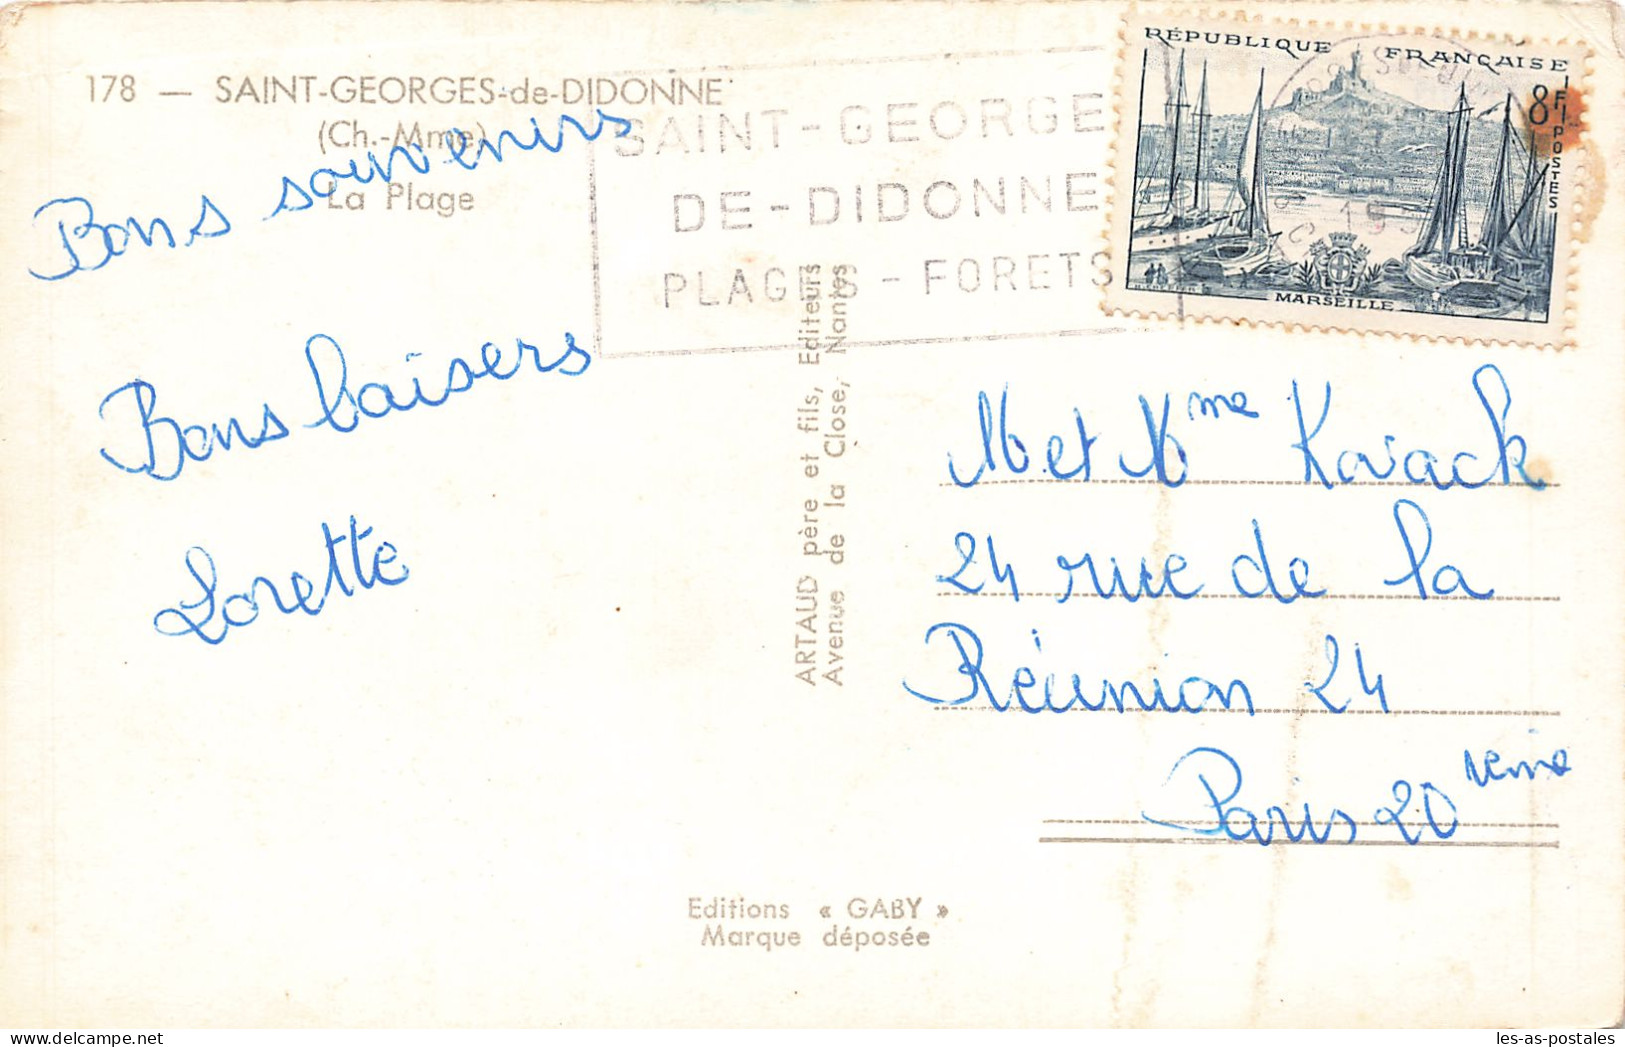 178 — SAINT-GEORGES-de-DIDONNE
(Ch.-Mme)
La Plage
Bons souvenirs
Bons baisers
Lorette
SAINT-GEORGE
DE-DIDONNE
PLAGES - FORETS
RÉPUBLIQUE FRANÇAISE
8F
POSTES
MARSEILLE
ARTAUD père et fils, Editeurs
Avenue de la Close, Nantes
M et Mme Kovack
24 rue de la
Réunion 24
Paris 20 ieme
Editions « GABY »
Marque déposée
les-as-postales